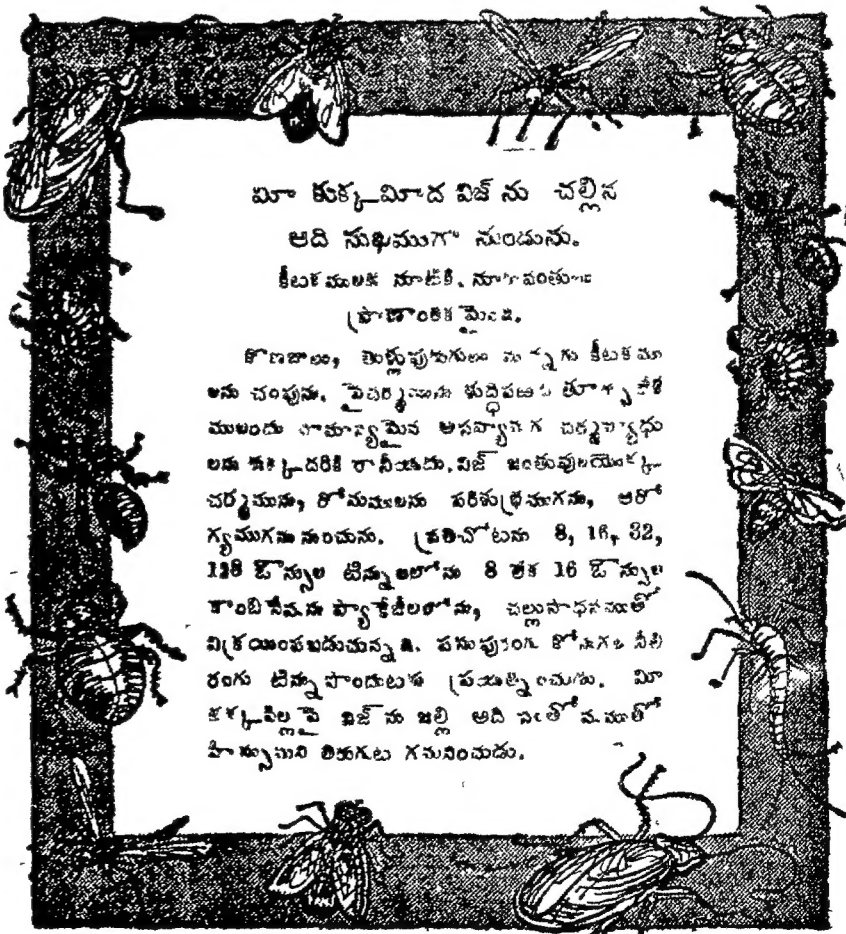 మీ కుక్కమీద విజ్ ను చల్లిన
అది సుఖముగా నుండును.
కీటకములకు నూటికి, నూరువంతులు
ప్రాణాంతకమైనది.
కొణజాలు, తెళ్లుపురుగులు మున్నగు కీటకము
లను చంపును. పైచర్మమును శుద్ధిపఱచి
ములందు సామాన్యమైన చర్మవ్యాధు
లను కుక్కదరికి రానీయదు. విజ్ జంతువులయొక్క
చర్మమును, రోమములను పరిశుభ్రముగను, ఆరో
గ్యముగను నుంచును. ప్రతిచోటను 8, 16, 32,
128 ఔన్సుల టిన్నులలోను 8 లేక 16 ఔన్సుల
కాంబినేషను ప్యాకేజీలలోను, చల్లుసాధనముతో
విక్రయింపబడుచున్నది. పసుపురంగు నీలి
రంగు టిన్ను పొందుటకు ప్రయత్నించుడు. మీ
కుక్కపిల్లపై విజ్ ను జల్లి అది సంతోషముతో
తిరుగుట గమనించుడు.